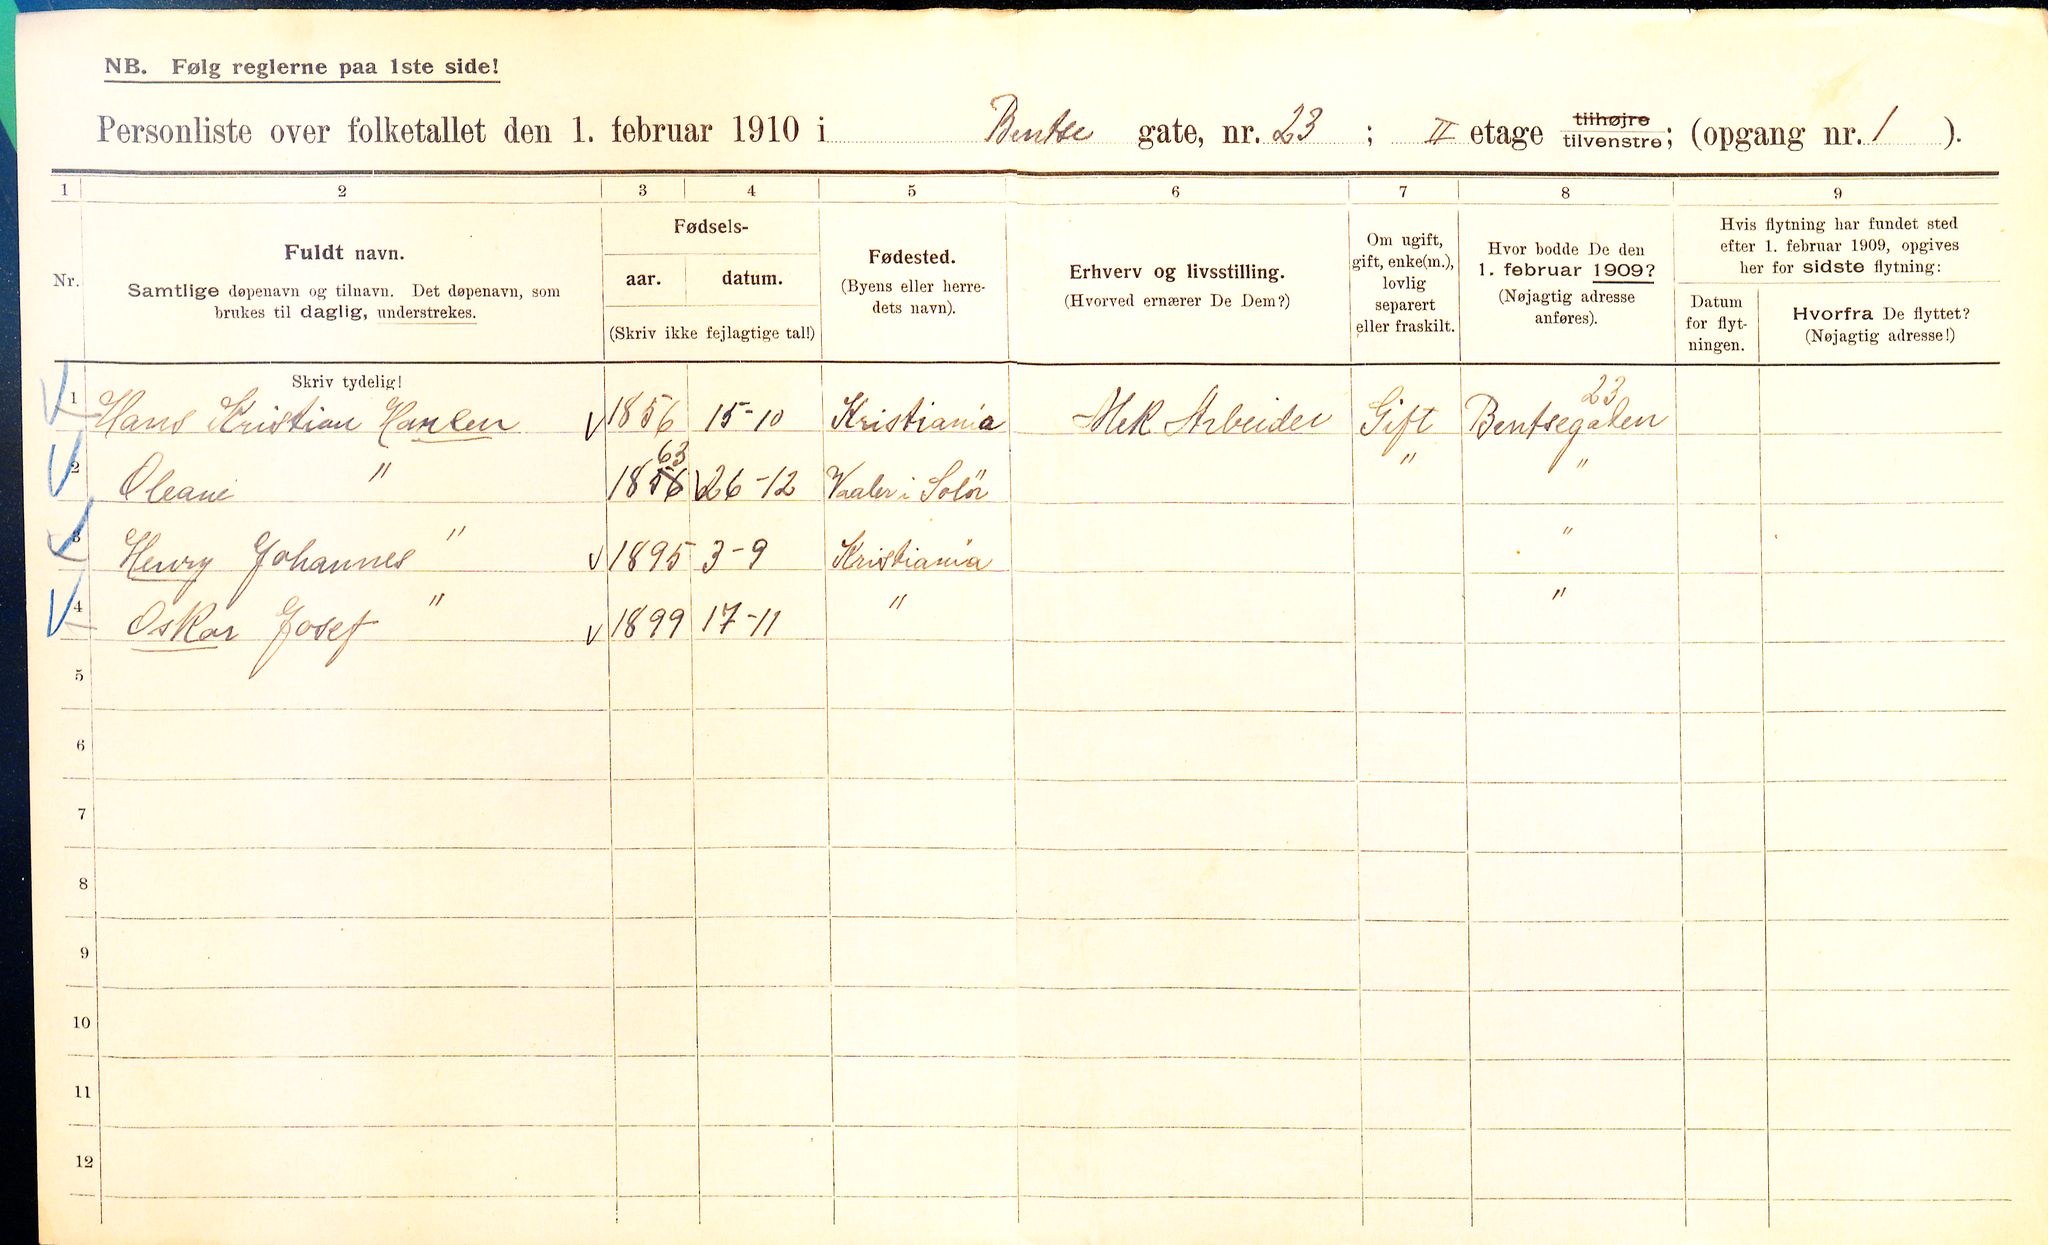 NB. Følg reglerne paa 1ste side!
Personliste over folketallet den 1. februar 1910 i Bentse gate, nr. 23 ; II etage tilhøjre tilvenstre; (opgang nr. 1 ).
1 2 3 4 5 6 7 8 9
Nr.
Fuldt navn.
Samtlige døpenavn og tilnavn. Det døpenavn, som
brukes til daglig, understrekes.
Skriv tydelig!
Fødsels-
aar. datum.
(Skriv ikke fejlagtige tal!)
Fødested.
(Byens eller herre-
dets navn).
Erhverv og livsstilling.
(Hvorved ernærer De Dem?)
Om ugift,
gift, enke(m.),
lovlig
separert
eller fraskilt.
Hvor bodde De den
1. februar 1909?
(Nøjagtig adresse
anføres).
Hvis flytning har fundet sted
efter 1. februar 1909, opgives
her for sidste flytning:
Datum
for flyt-
ningen.
Hvorfra De flyttet?
(Nøjagtig adresse!)
1 Hans Kristian Hansen 1856 15-10 Kristiania Mek Arbeider Gift Bentsegaten 23
2 Oleane " 1856 63 26-12 Vaaler i Solör " "
3 Henry Johannes " 1895 3-9 Kristiania "
4 Oskar Josef " 1899 17-11 " "
5
6
7
8
9
10
11
12